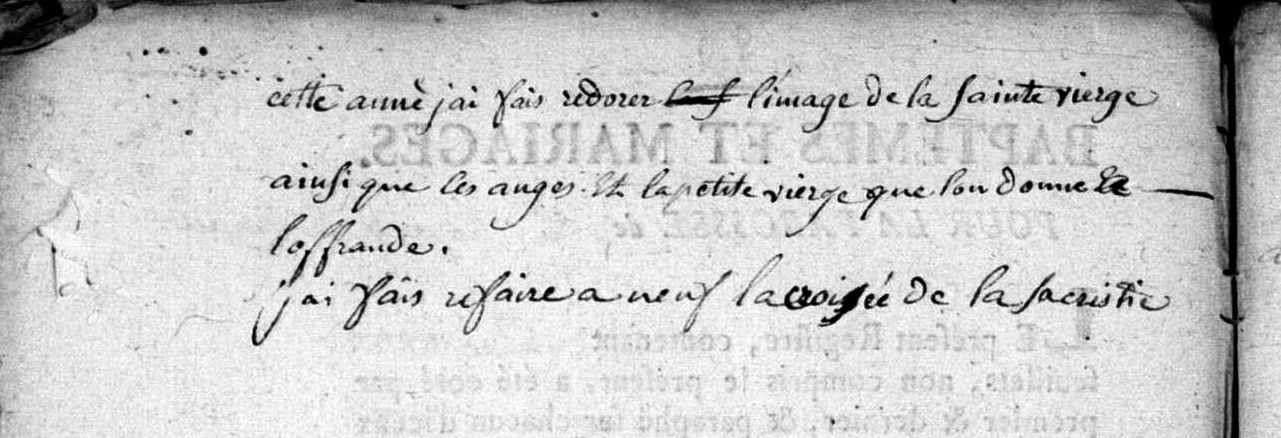 cette annè j'ai fais redorer l'image de la sainte vierge
ainsi que les anges. Et la petite vierge que lon donne a
loffrande.
j'ai fais refaire a neuf la croisée de la sacristie
BAPTEMES ET MARIAGES,
POUR LA PAROISSE de
LE present Registre, contenant
feuillets, non compris le présent, a été coté, par
premier & dernier, & paraphé sur chacun d'iceux